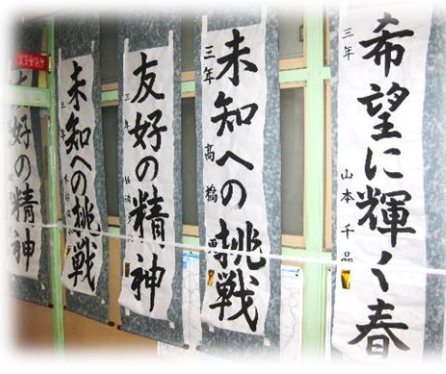 希望に輝く春
三年 山本千晶
未知への挑戦
三年 高橋
友好の精神
三年
未知への挑戦
三年
好の精神